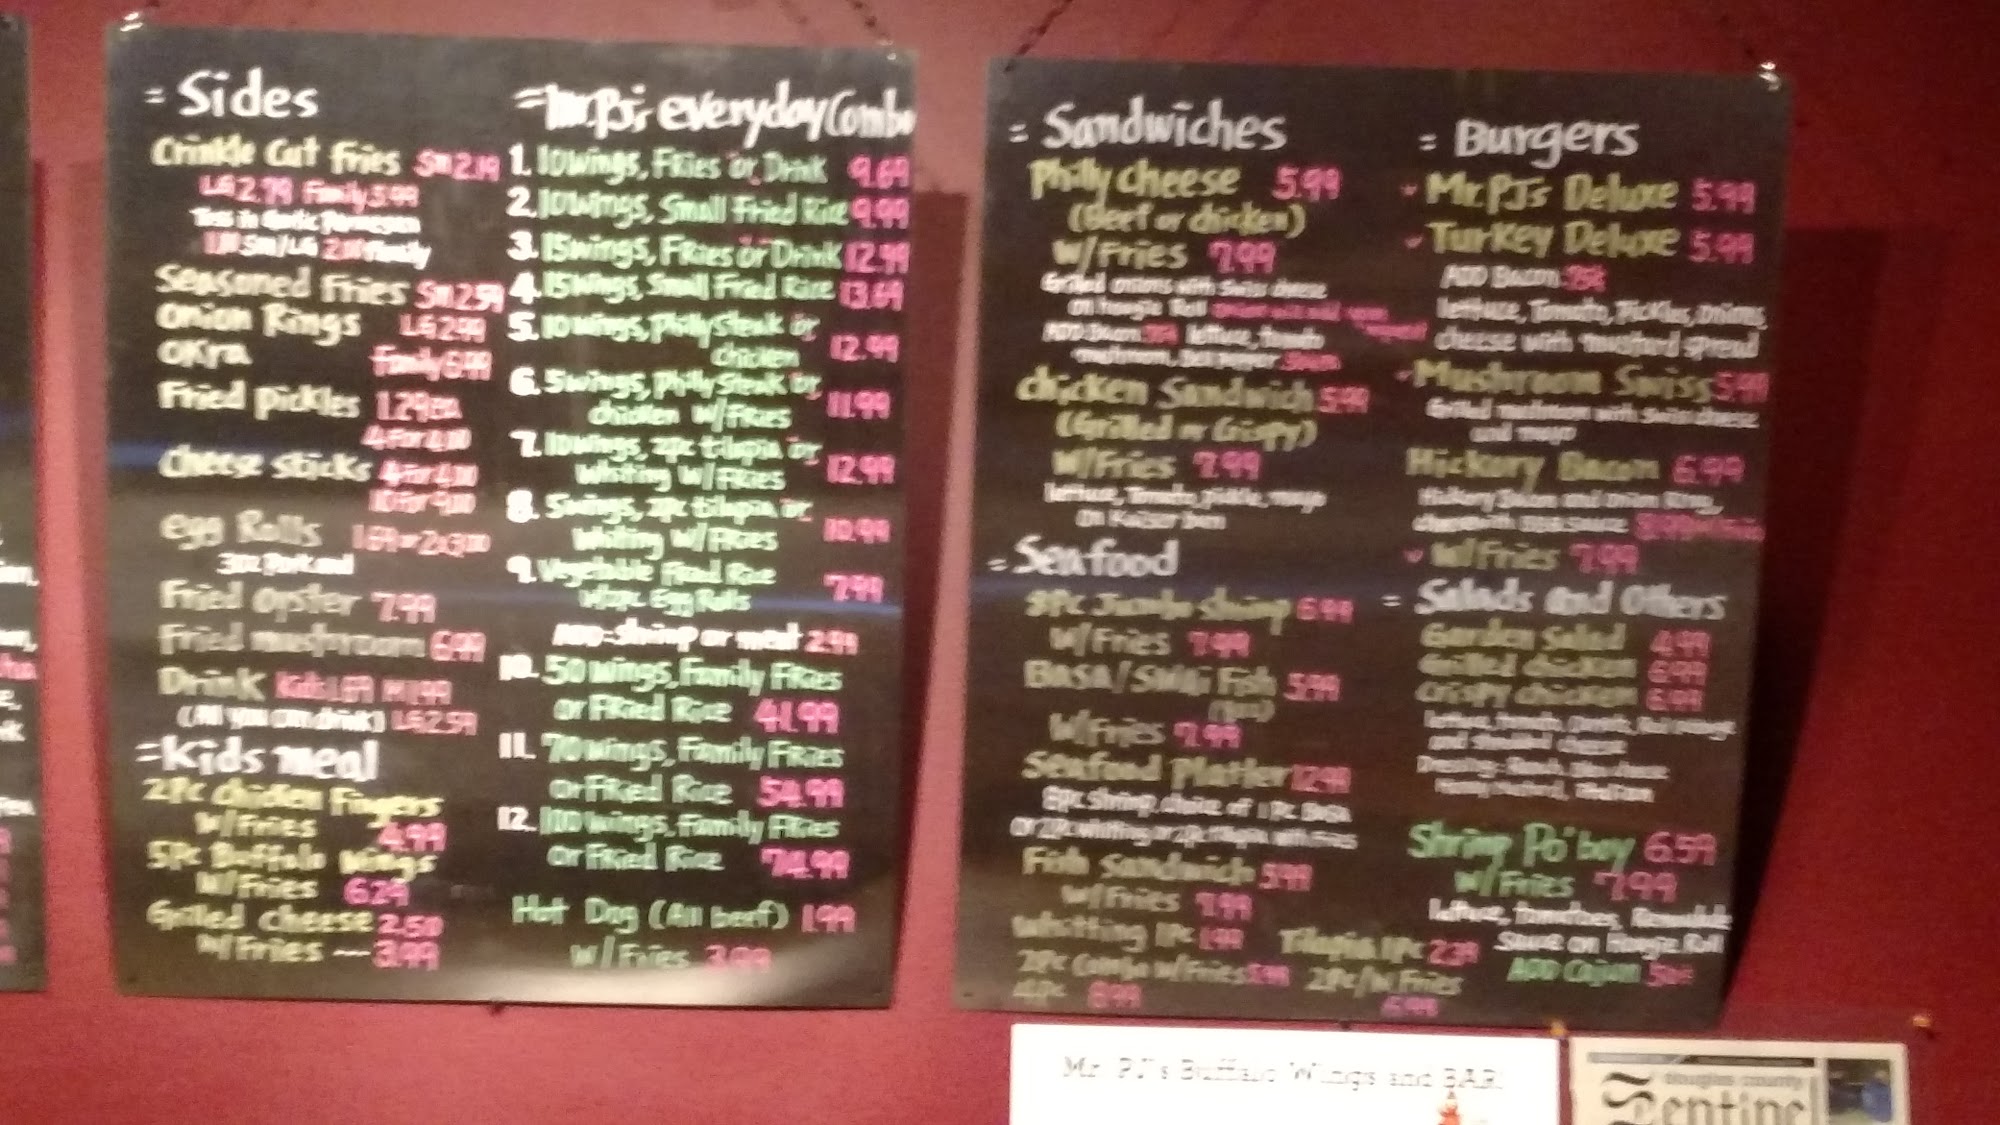 = Sides
Crinkle Cut fries Sm 2.19
LG 2.79 Family 5.99
Toss in Garlic Parmesan
Sm/LG Family
Seasoned Fries Sm 2.59
Onion Rings LG 2.99
OKra Family 6.99
Fried pickles 1.29 EA
4 For 4.00
Cheese sticks 4 For 4.00
10 For 9.00
egg Rolls 1.69 or 2x3.00
Fried oyster 7.99
Fried mushroom 6.99
Drink Kids 1.69 M 1.99
(All you can drink) LG 2.59
= Kids meal
2Pc chicken Fingers
W/Fries 4.99
5Pc Buffalo Wings
W/Fries 6.29
Grilled cheese 2.50
W/Fries -- 3.99
= Mr.PJ's everyday Combo
1. 10 wings, Fries or Drink 9.69
2. 10 wings, Small Fried Rice 9.99
3. 15 wings, Fries or Drink 12.99
4. 15 wings, Small Fried Rice 13.69
5. 10 wings, Philly Steak or
chicken 12.99
6. 5 wings, Philly Steak or
chicken W/Fries 11.99
7. 10 wings, 2Pc tilapia or
Whiting W/Fries 12.99
8. 5 wings, 2Pc tilapia or
Whiting W/Fries 10.99
9. Vegetable Fried Rice
W/2Pc Egg Rolls 7.99
ADD: shrimp or meat 2.99
10. 50 wings, Family Fries
or Fried Rice 41.99
11. 70 wings, Family Fries
or Fried Rice 54.99
12. 100 wings, Family Fries
or Fried Rice 74.99
Hot Dog (All beef) 1.99
W/Fries 3.99
= Sandwiches
Philly cheese 5.99
(Beef or chicken)
W/Fries 7.99
Grilled onions with Swiss cheese
on hoagie Roll
ADD Bacon lettuce, tomato
mushroom, Bell pepper
chicken Sandwich 5.99
(Grilled or Crispy)
W/Fries 7.99
lettuce, Tomato, pickle, mayo
on Kaiser bun
= Seafood
8Pc Jumbo shrimp 6.99
W/Fries 7.99
BASA/SWAI Fish 5.99
W/Fries 7.99
Seafood Platter 12.99
8Pc shrimp, choice of 1Pc BASA
or 2Pc whiting or 2Pc tilapia with Fries
Fish Sandwich 5.99
W/Fries 7.99
Whitting 1Pc 1.99 Tilapia 1Pc 2.39
2Pc Combo w/Fries 5.99 2Pc/W Fries
4Pc 8.99 6.99
= Burgers
Mr.PJ's Deluxe 5.99
Turkey Deluxe 5.99
ADD Bacon 75¢
lettuce, Tomato, Pickles, onions
cheese with mustard spread
Mushroom Swiss 5.99
Grilled mushroom with Swiss cheese
and mayo
Hickory Bacon 6.99
Hickory Bacon and onion Ring,
cheese with BBQ sauce
W/Fries 7.99
= Salads and others
Garden Salad 4.99
Grilled chicken 6.99
Crispy chicken 6.99
lettuce, tomato,
and shredded cheese
Dressing: Ranch, blue cheese
Honey mustard, Italian
Shrimp Po'boy 6.59
W/Fries 7.99
lettuce, tomatoes, Remoulade
Sauce on Hoagie Roll
ADD Cajun 50¢
Mr. PJ's Buffalo Wings and BAR!
Douglas County
Sentine